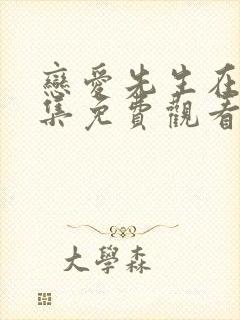 戀愛先生在
集免費觀看
大學森